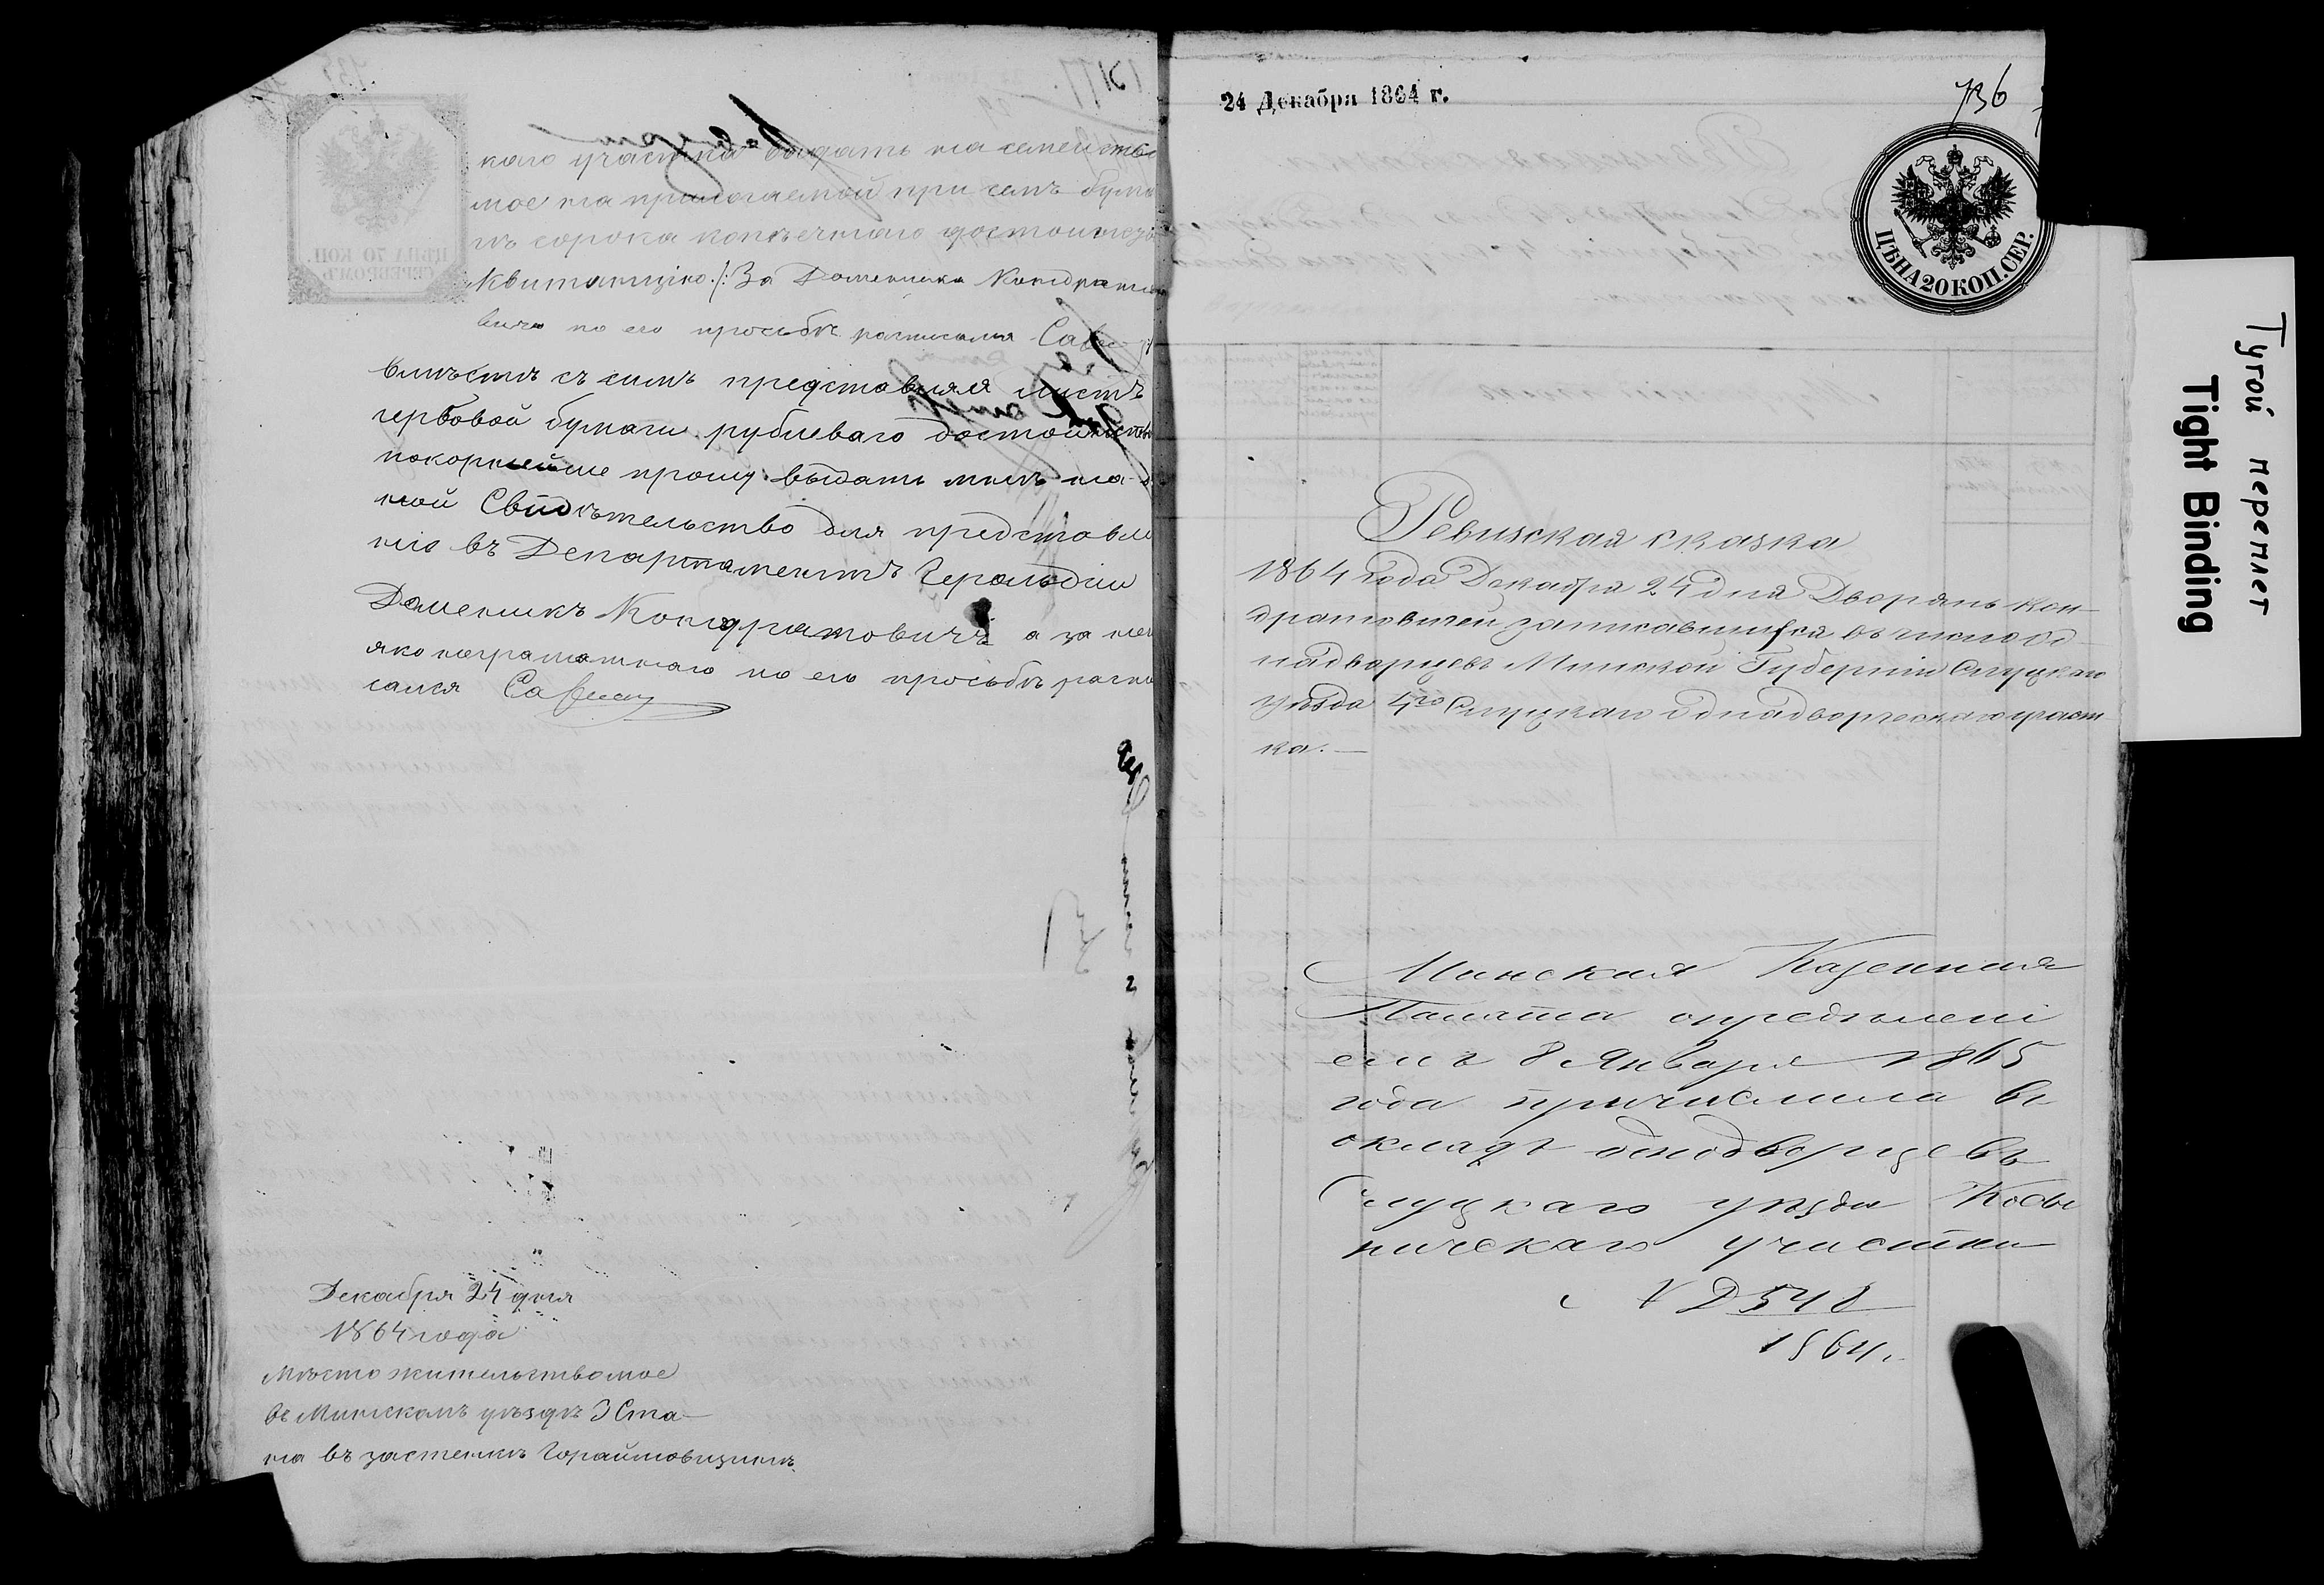 каго участка выдать на семейство
мое на прилогаемой при семъ бума
гѣ сорока копѣечнаго достоинства
Квитанцію. /: За Доменика Кондрато
вича по его просьбѣ росписался Сав
Вмѣстѣ съ симъ представляя листъ
гербовой бумаги рублеваго достоинства
покорнейше прошу выдать мнѣ на
ной Свидѣтельство для представле
нія въ Департаментъ Герольдіи
Доменикъ Кондратовичъ а за не
яко неграмотнаго по его просьбѣ распи
сался
Декабря 24 дня
1864 года
Мѣсто жительства мое
въ Минскомъ уѣздѣ 3 Ста-
на въ застенкѣ
ЦѢНА 70 КОП.
СЕРЕБРОМЪ
24 Декабря 1864 г.
736
ЦѢНА 20 КОП. СЕР.
Ревизская сказка
1864 года Декабря 24 дня Дворянъ Кон-
дратовичей записавшихся въ число Од-
надворцевъ Минской Губерніи Слуцкаго
уѣзда 4го Слуцкаго однадворческаго участ-
ка. —
Минская Казенная
Палата опредѣлені
емъ 8 Января 1865
года причислила въ
окладъ однодворцевъ
Слуцкаго уѣзда Косы
ничскаго участка
548
1864 г.
Тугой переплет
Tight Binding